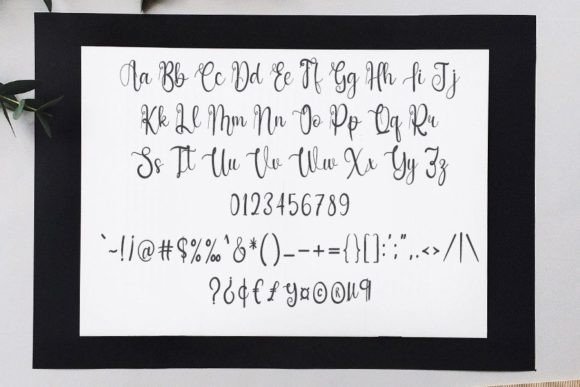 Aa Bb Cc Dd Ee Ff Gg Hh Ii Jj
Kk Ll Mm Nn Oo Pp Qq Rr
Ss Tt Uu Vv Ww Xx Yy Zz
0123456789
`~!¡@#$%‰^&*()_-+={}[]:';",.<>/|\
?¿¢€£¥¤©®µ¶